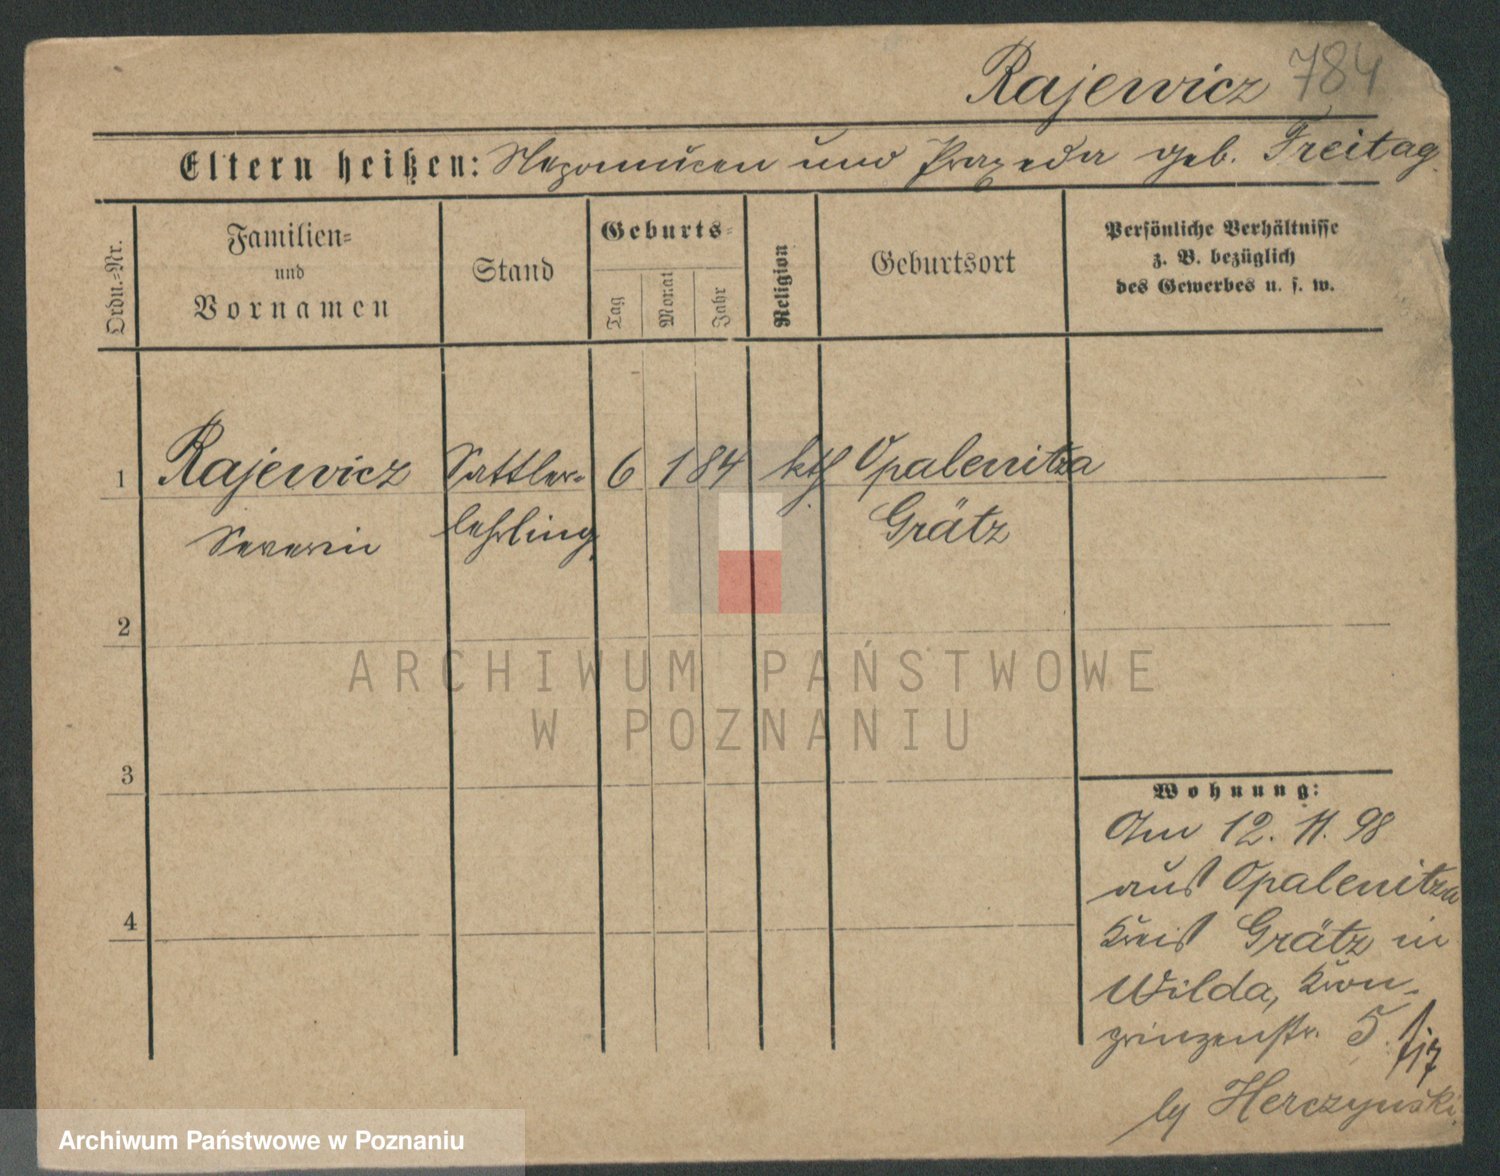 Rajewicz 784
Eltern heißen: Nepomucen und Praxeda geb. Freitag.
Ordn.=Nr.
Familien=
und
Vornamen
Stand
Geburts=
Tag
Monat
Jahr
Religion
Geburtsort
Persönliche Verhältnisse
z. B. bezüglich
des Gewerbes u. s. w.
1 Rajewicz Sattler= 6 1 84 kth Opalenitza
Severin lehrling Grätz
2
3
4
Wohnung:
Am 12. 11. 98
aus Opalenitza
Kreis Grätz in
Wilda, Kron-
prinzenstr. 5.
by Herczynski.
ARCHIWUM PAŃSTWOWE
W POZNANIU
Archiwum Państwowe w Poznaniu